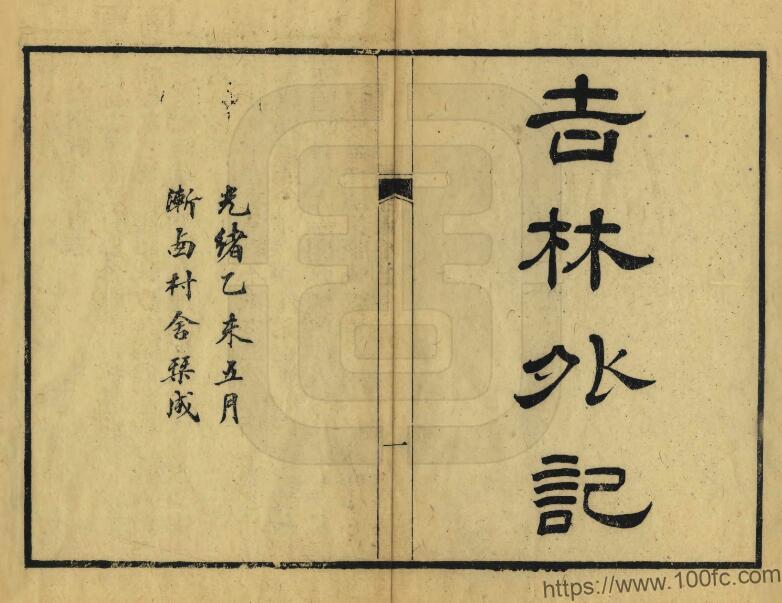 吉林外記
光緒乙未五月
漸西村舍栞成
一
https://www.100fc.com